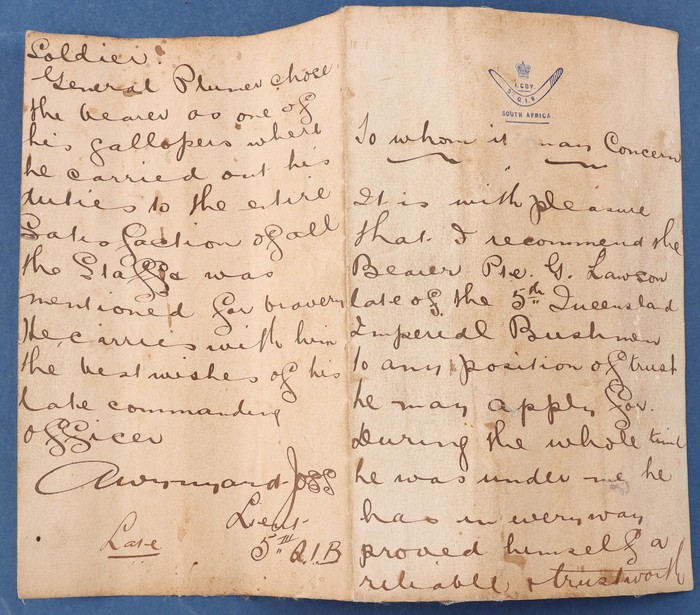 1. COY.
5TH Q.I.B
SOUTH AFRICA
To whom it may Concern
It is with pleasure
that I recommend the
Bearer Pte. G. Lawson
late of the 5th Queensland
Imperial Bushmen
to any position of trust
he may apply for.
During the whole time
he was under me he
has in every way
proved himself a
reliable & trustworth
Soldier.
General Plumer chose
the bearer as one of
his gallopers where
he carried out his
duties to the entire
Satisfaction of all
the Staff & was
mentioned for bravery
He carries with him
the best wishes of his
late commanding
officer
Lieut
Late 5th Q.I.B